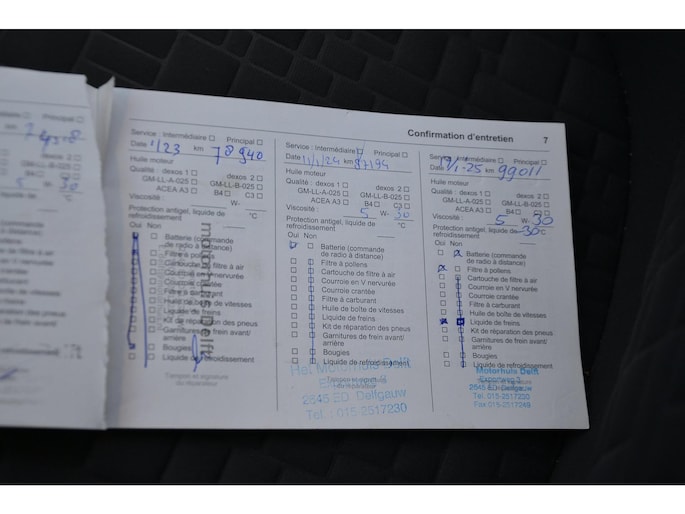 Confirmation d'entretien 7
Service : Intermédiaire Principal
Date 1/23 km 78940
Huile moteur
Qualité : dexos 1 dexos 2
GM-LL-A-025 GM-LL-B-025
ACEA A3 B4 C3
Viscosité : W-
Protection antigel, liquide de refroidissement °C
Oui Non
Batterie (commande
de radio à distance)
Filtre à pollens
Cartouche de filtre à air
Courroie en V nervurée
Courroie crantée
Filtre à carburant
Huile de boîte de vitesses
Liquide de freins
Kit de réparation des pneus
Garnitures de frein avant/
arrière
Bougies
Liquide de refroidissement
Tampon et signature
du réparateur
motorhuis Delft
Service : Intermédiaire Principal
Date 11/1/24 km 87194
Huile moteur
Qualité : dexos 1 dexos 2
GM-LL-A-025 GM-LL-B-025
ACEA A3 B4 C3
Viscosité : 5 W-30
Protection antigel, liquide de
refroidissement °C
Oui Non
Batterie (commande
de radio à distance)
Filtre à pollens
Cartouche de filtre à air
Courroie en V nervurée
Courroie crantée
Filtre à carburant
Huile de boîte de vitesses
Liquide de freins
Kit de réparation des pneus
Garnitures de frein avant/
arrière
Bougies
Liquide de refroidissement
Het Motorhuis Delft
2645 ED Delfgauw
Tel.: 015-2517230
Service : Intermédiaire Principal
Date 9/1-25 km 99011
Huile moteur
Qualité : dexos 1 dexos 2
GM-LL-A-025 GM-LL-B-025
ACEA A3 B4 C3
Viscosité : 5 W-30
Protection antigel, liquide de
refroidissement -30 °C
Oui Non
Batterie (commande
de radio à distance)
Filtre à pollens
Cartouche de filtre à air
Courroie en V nervurée
Courroie crantée
Filtre à carburant
Huile de boîte de vitesses
Liquide de freins
Kit de réparation des pneus
Garnitures de frein avant/
arrière
Bougies
Liquide de refroidissement
Motorhuis Delft
2645 ED Delfgauw
Tel. 015-2517230